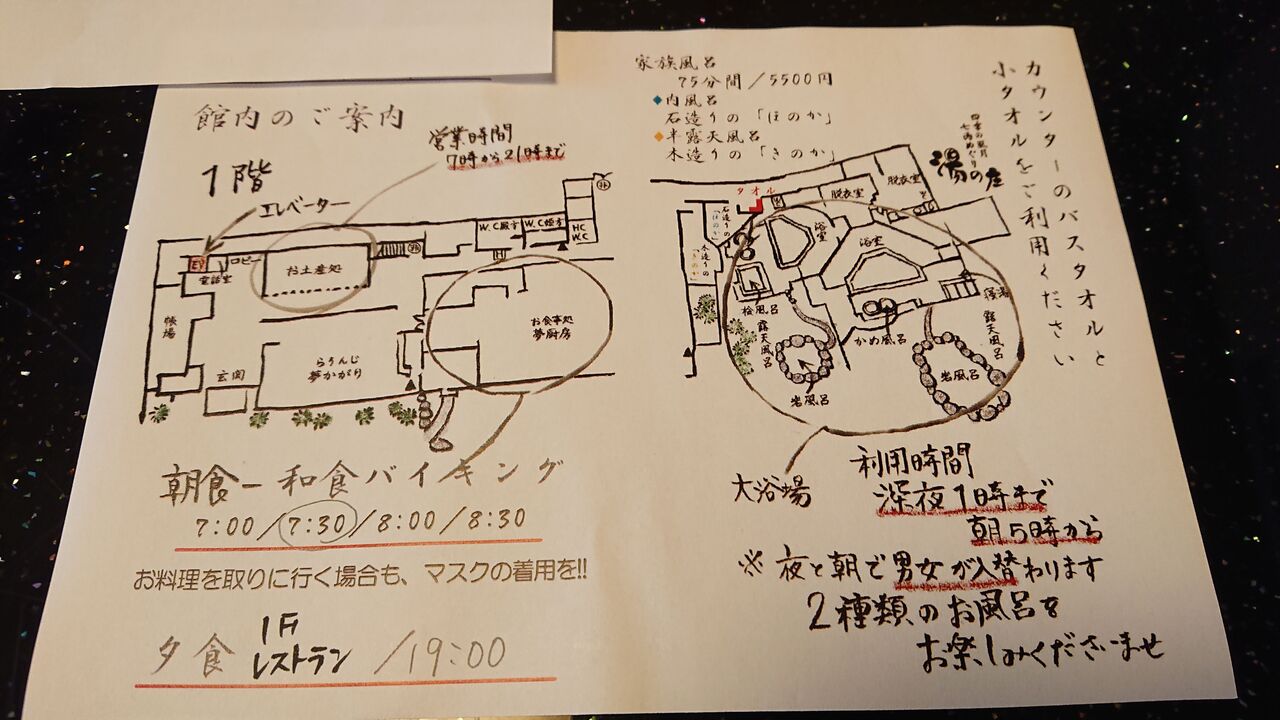 館内のご案内
1階
営業時間
7時から21時まで
エレベーター
EV
ロビー
電話室
お土産処
W.C殿方
W.C姫方
HC
W.C
帳場
玄関
らうんじ
夢かがり
お食事処
夢厨房
朝食－和食バイキング
7:00/7:30/8:00/8:30
お料理を取りに行く場合も、マスクの着用を!!
夕食 1F
レストラン /19:00
家族風呂
75分間/5500円
◆内風呂
石造りの「ほのか」
◆半露天風呂
木造りの「きのか」
カウンターのバスタオルと
小タオルをご利用ください
湯の座
タオル
脱衣室
脱衣室
石造りの
「ほのか」
木造りの
「きのか」
浴室
浴室
桧風呂
露天風呂
岩風呂
かめ風呂
寝湯
露天風呂
岩風呂
大浴場
利用時間
深夜1時まで
朝5時から
※夜と朝で男女が入替わります
2種類のお風呂を
お楽しみくださいませ